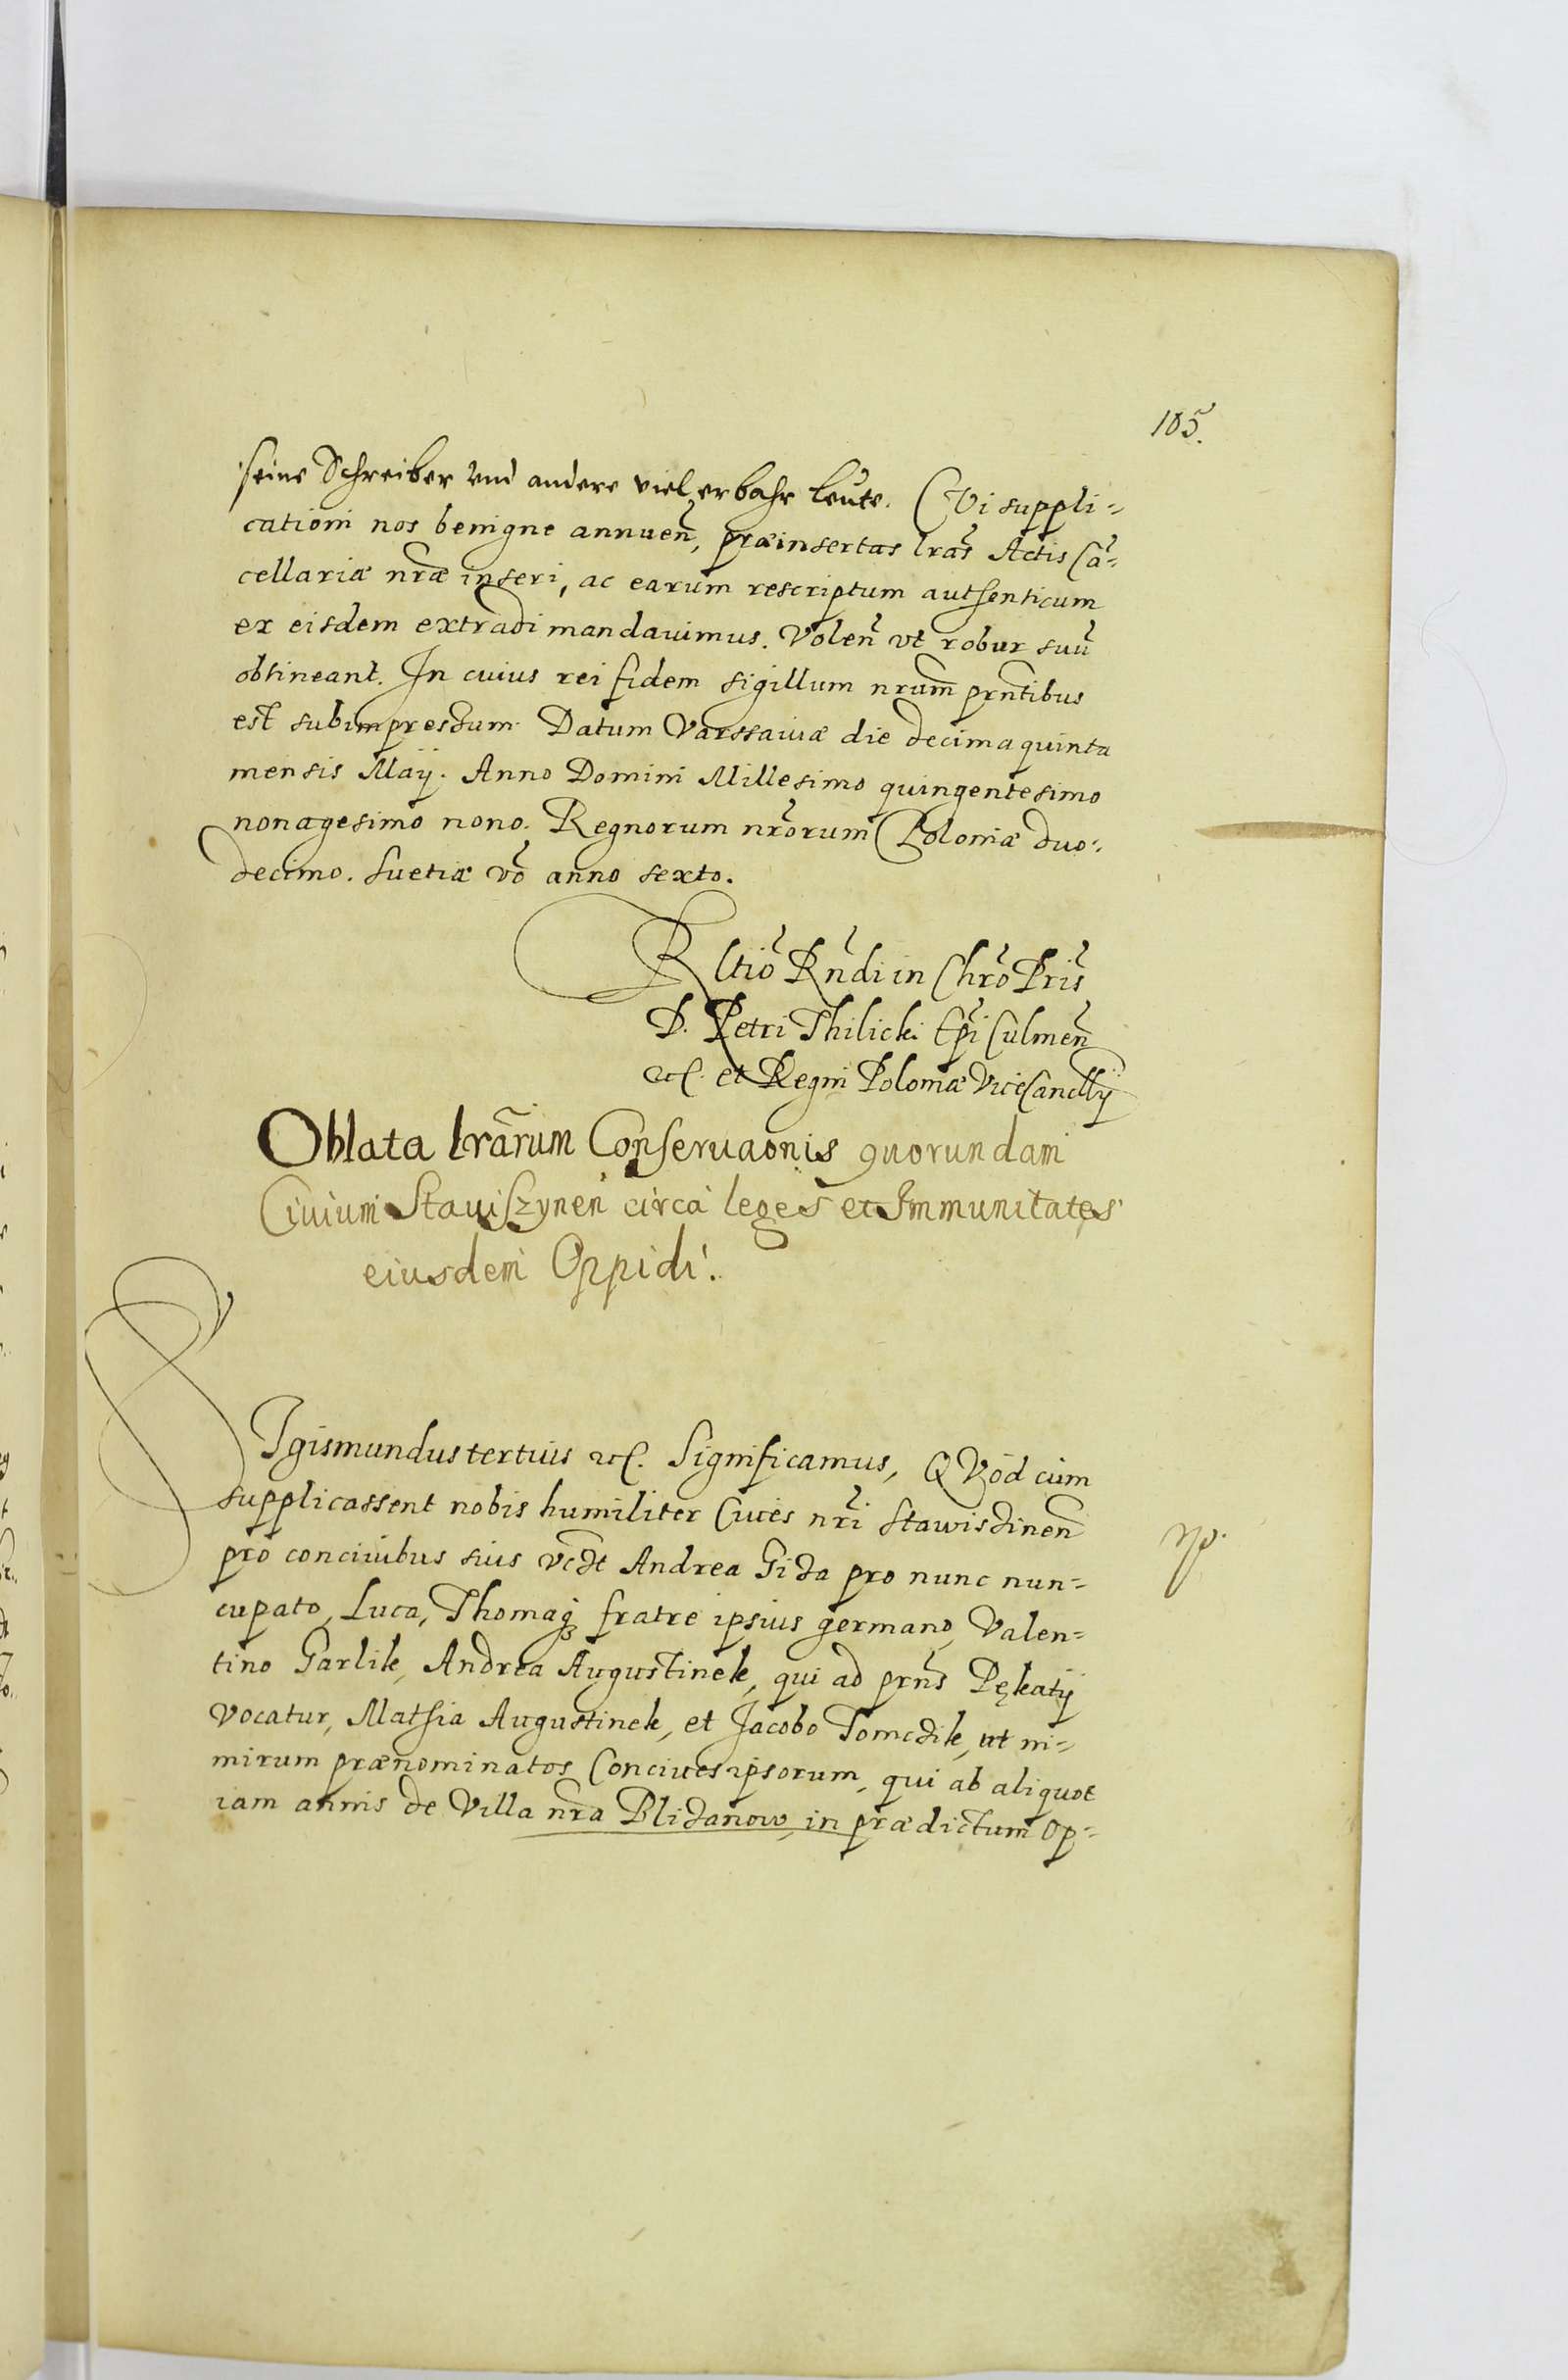 105.
seine Schreiber vnd andere viel erbahr leute. Cui suppli-
cationi nos benigne annuen̄, præinsertas lr̃as Actis Cã-
cellariæ nr̃æ inseri, ac earum rescriptum authenticum
ex eisdem extradi mandauimus. Volen̄ vt robur suũ
obtineant. In cuius rei fidem sigillum nr̃um pr̃ntibus
est subimpressum. Datum Varssauiæ die decima quinta
mensis Maij. Anno Domini Millesimo quingentesimo
nonagesimo nono. Regnorum nr̃orum Poloniæ duo-
decimo. Suetiæ võ anno sexto.
Rltiõ Rñdi in Chrõ Pris̃
D. Petri Thilicki Ep̃i Culmen̄
etc. et Regni Poloniæ ViceCancllij
Oblata lr̃arum Conseruaonis quorundam
Ciuium Stauiszynen̄ circa leges et Immunitates
eiusdem Oppidi.
SIgismundus tertius etc. Significamus, QVod cùm
supplicassent nobis humiliter Ciues nr̃i Stawiszinen̄
pro conciuibus suis vczt Andrea Giza pro nunc nun-
cupato, Luca, Thomaqꝫ fratre ipsius germano, Valen-
tino Garlik, Andrea Augustinek, qui ad prñs Pękatÿ
vocatur, Mathia Augustinek, et Jacobo Tomczik, ut ni-
mirum prænominatos Conciues ipsorum, qui ab aliquot
iam annis de Villa nr̃a Blizanow, in prædictum Op-